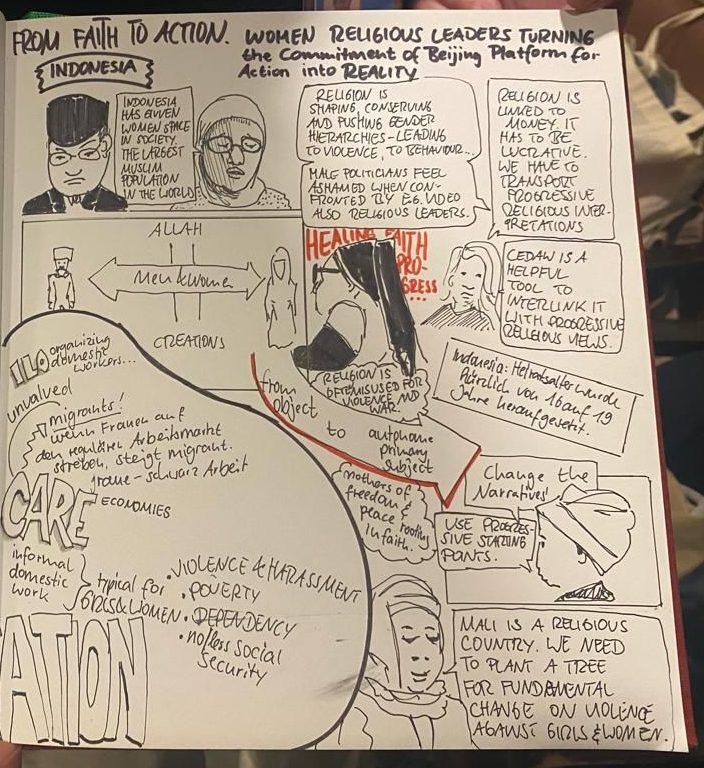 FROM FAITH TO ACTION. WOMEN RELIGIOUS LEADERS TURNING
the Commitment of Beijing Platform for
Action into REALITY
INDONESIA
INDONESIA
HAS GIVEN
WOMEN SPACE
IN SOCIETY.
THE LARGEST
MUSLIM
POPULATION
IN THE WORLD
RELIGION IS
SHAPING, CONSERVING
AND PUSHING GENDER
HIERARCHIES – LEADING
TO VIOLENCE, TO BEHAVIOUR...
MALE POLITICIANS FEEL
ASHAMED WHEN CON-
FRONTED BY E.G. VIDEO
ALSO RELIGIOUS LEADERS.
RELIGION IS
LINKED TO
MONEY. IT
HAS TO BE
LUCRATIVE.
WE HAVE TO
TRANSPORT
PROGRESSIVE
RELIGIOUS INTER-
PRETATIONS
ALLAH
Men & Women
CREATIONS
HEALING FAITH
PRO-
GRESS
...
CEDAW IS A
HELPFUL
TOOL TO
INTERLINK IT
WITH PROGRESSIVE
RELIGIOUS VIEWS.
RELIGION IS
OFTEN MISUSED FOR
VIOLENCE AND
WAR.
Indonesia: Heiratsalter wurde
kürzlich von 16 auf 19
Jahre heraufgesetzt.
from
object
to autonome
primary
subject
ILO organizing
domestic
workers...
unvalued
migrants!
wenn Frauen auf
den regulären Arbeitsmarkt
streben, steigt migrant.
graue – schwarz Arbeit
CARE ECONOMIES
informal
domestic
work
typical for
GIRLS & WOMEN
• VIOLENCE & HARASSMENT
• POVERTY
• DEPENDENCY
• no/less social
security
ATION
mothers of
freedom &
peace rooting
in faith.
Change the
Narratives!
USE PROGRES-
SIVE STARTING
POINTS.
MALI IS A RELIGIOUS
COUNTRY. WE NEED
TO PLANT A TREE
FOR FUNDAMENTAL
CHANGE ON VIOLENCE
AGAINST GIRLS & WOMEN.